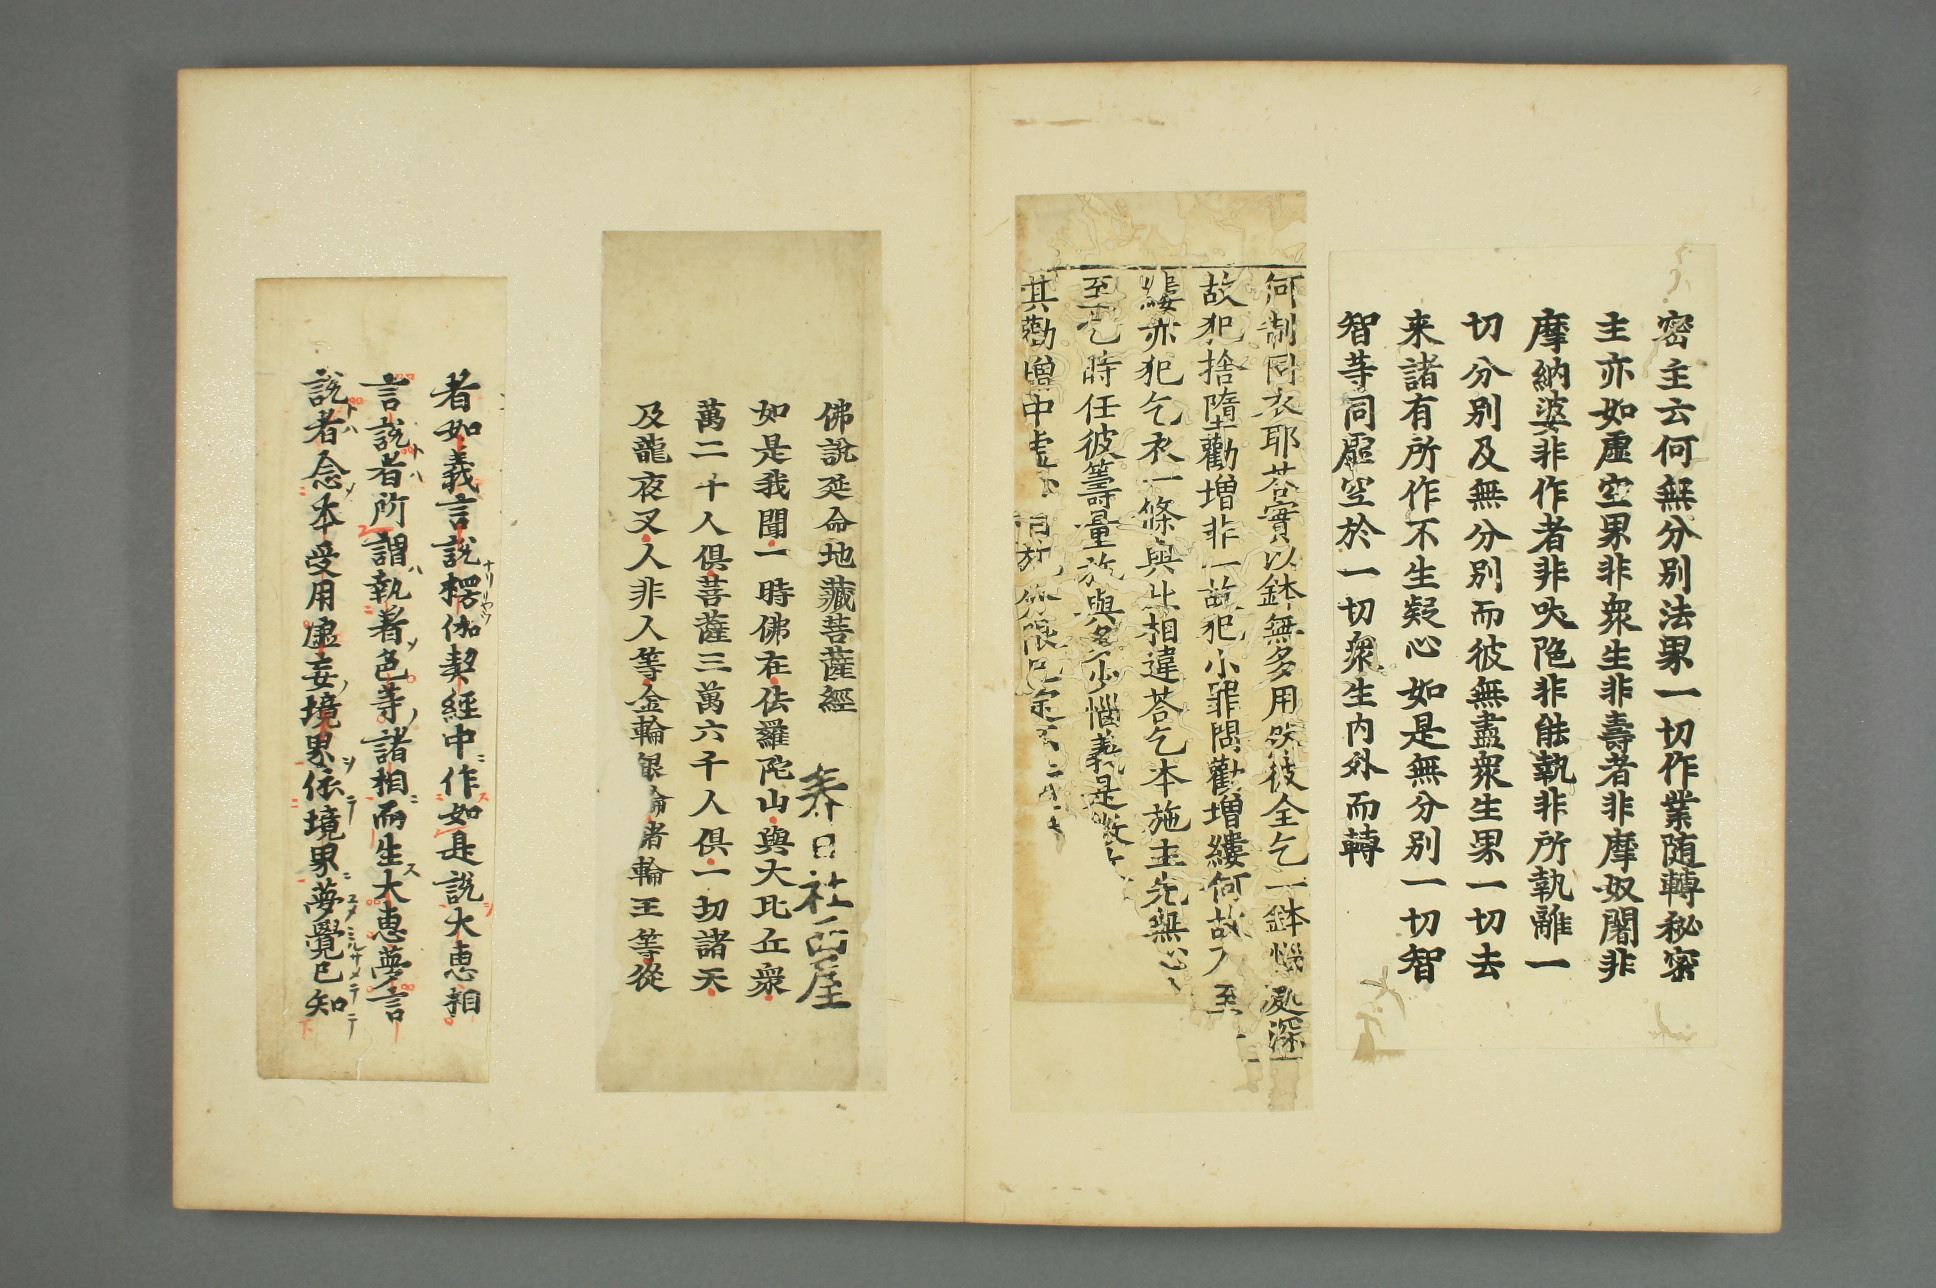 密主云何無分別法果一切作業随轉秘密
主亦如虛空果非衆生非壽者非摩奴闍非
摩納婆非作者非吠陁非能執非所執離一
切分別及無分別而彼無盡衆生果一切去
来諸有所作不生疑心如是無分別一切智
智等同虛空於一切衆生内外而轉
何制同衣耶荅實以鉢無多用然彼全乞一鉢惱處深
故犯捨墮勸增非一故犯小罪問勸增縷何故
縷亦犯乞衣一條與此相違荅乞本施主先無心
至乞時任彼籌量放與多少惱義是
其勸增中
佛說延命地藏菩薩經
春日社西屋
如是我聞一時佛在佉羅陀山與大比丘衆
萬二千人俱菩薩三萬六千人俱一切諸天
及龍夜叉人非人等金輪銀輪者輪王等從
者如義言說楞伽契經中作如是說大恵相
言說者所謂執著色等諸相而生大恵夢言
說者念本受用虛妄境界依境界夢覺已知